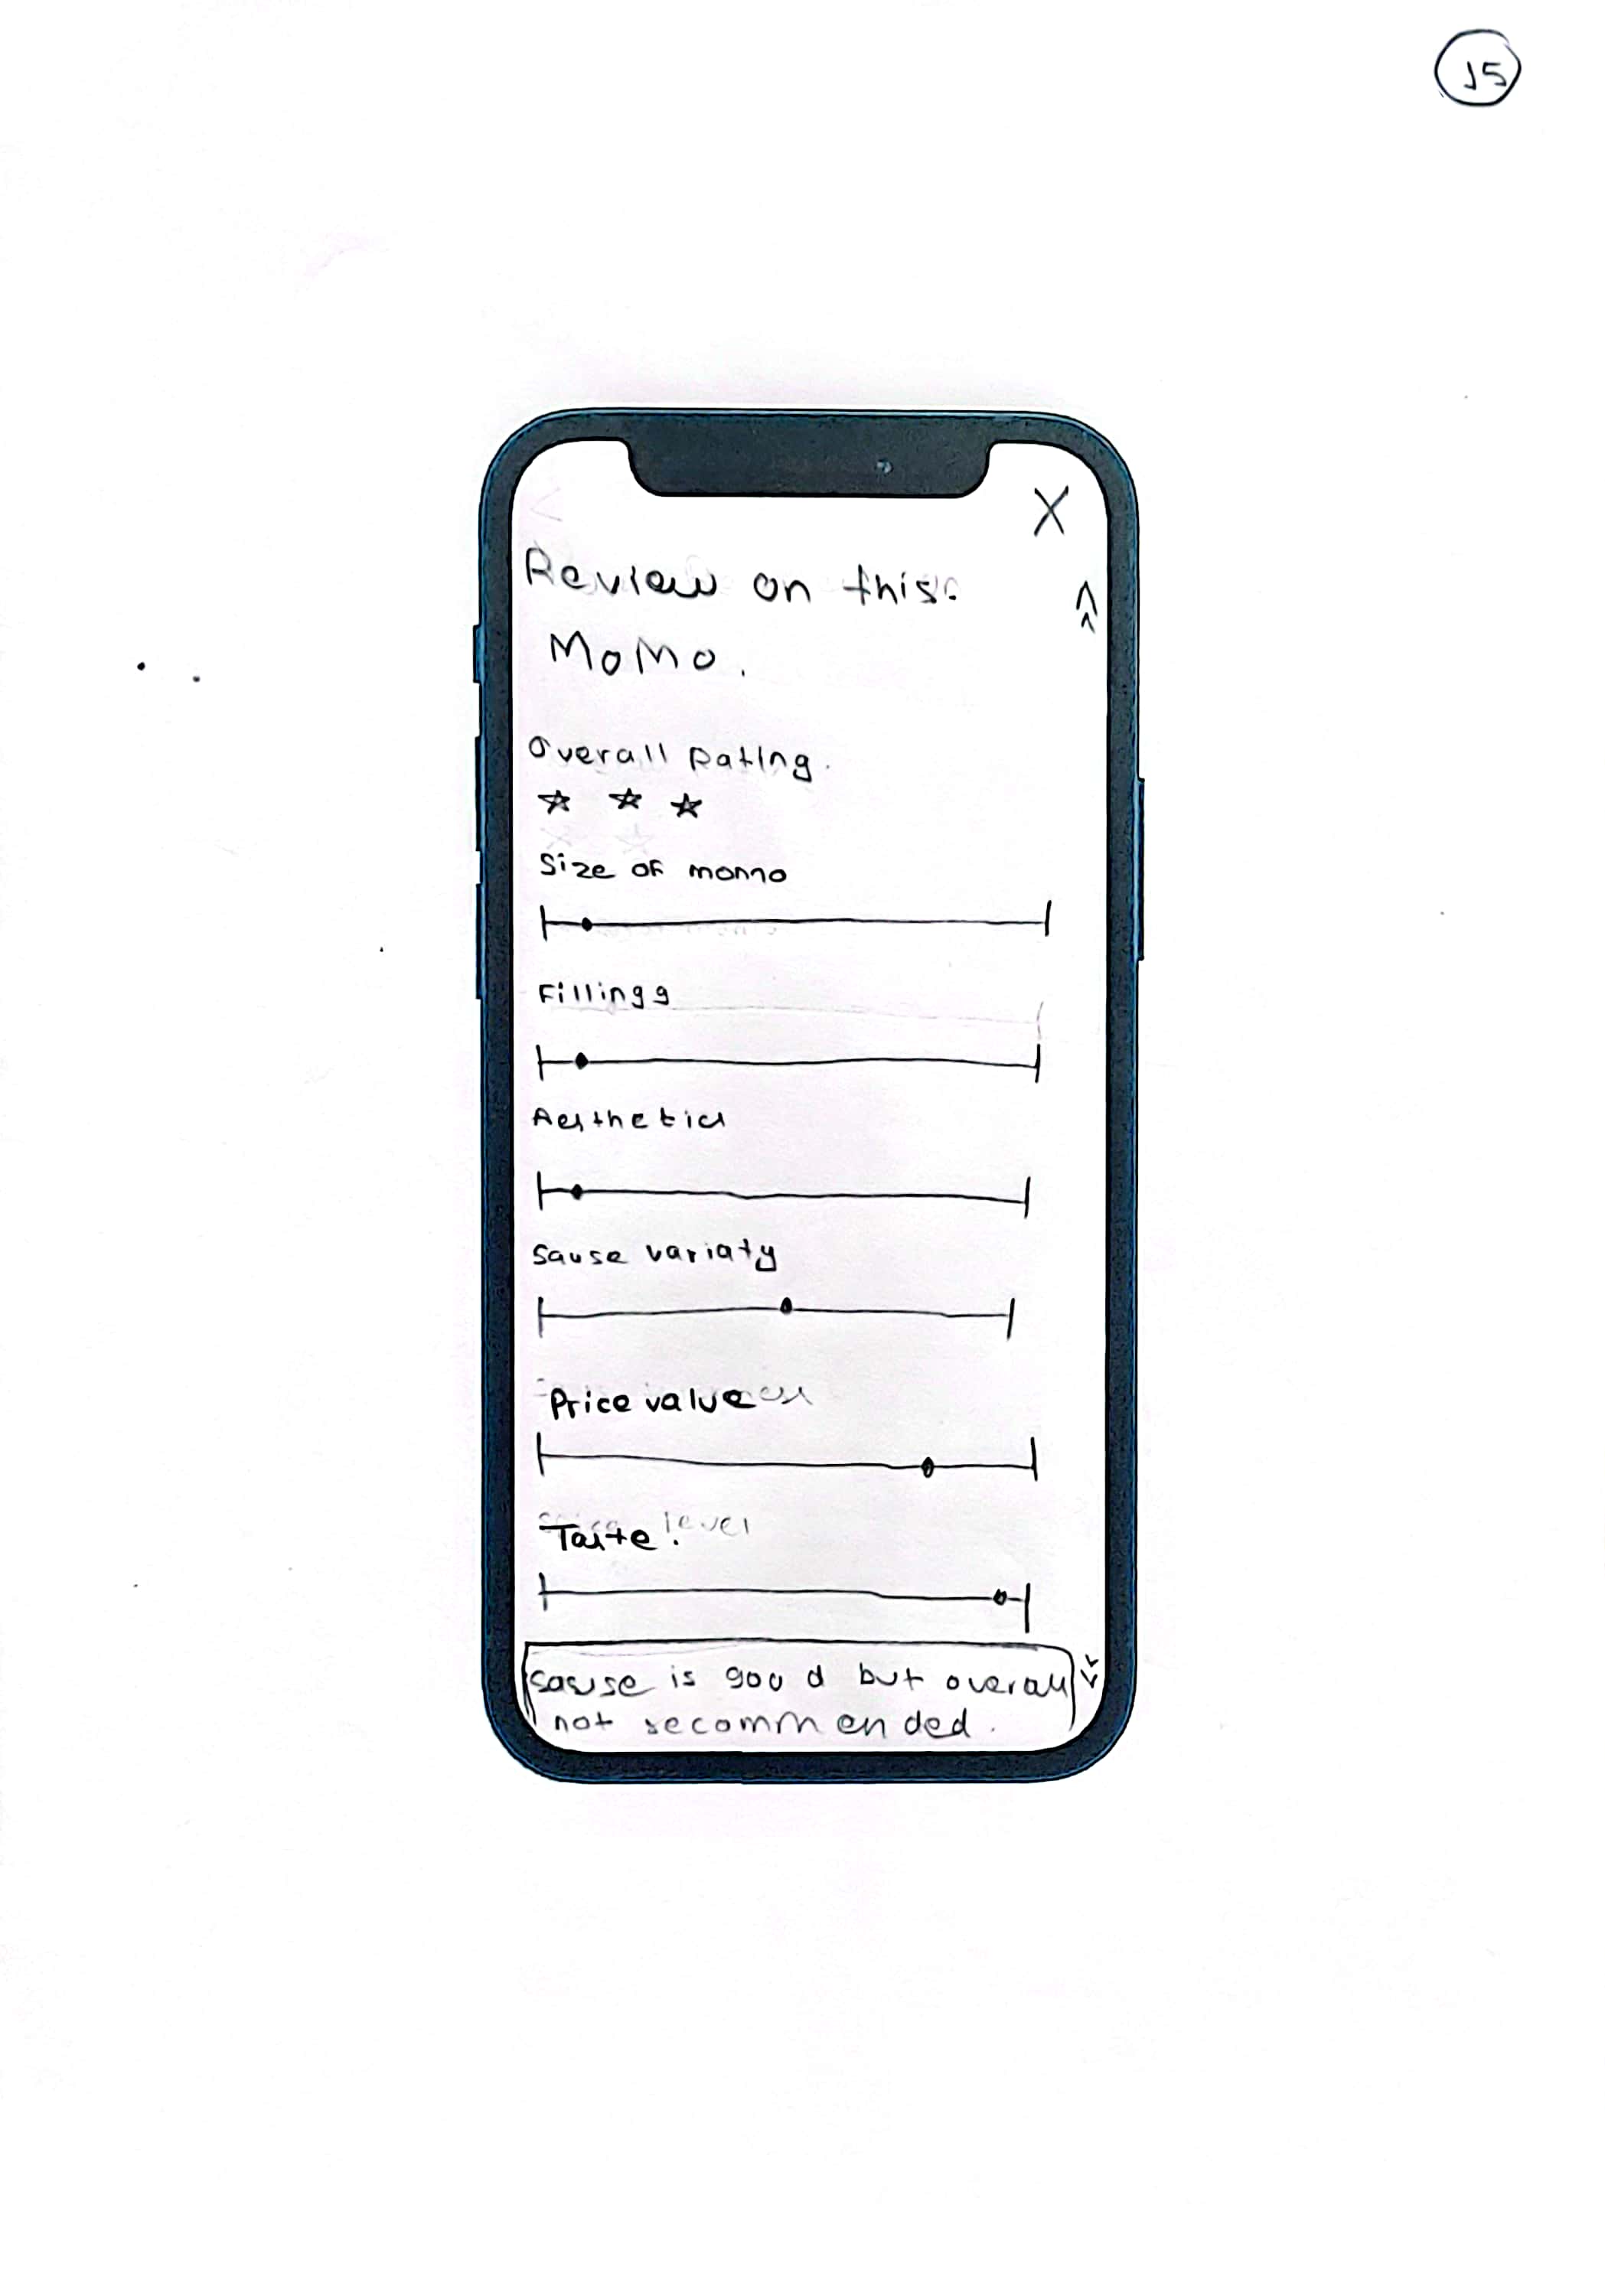 15
X
Review on this:
MoMo.
Overall Rating.
Size of momo
Fillingg
Aesthetics
Sause variaty
Price value
Taste. level
Sause is good but overall
not recommended.